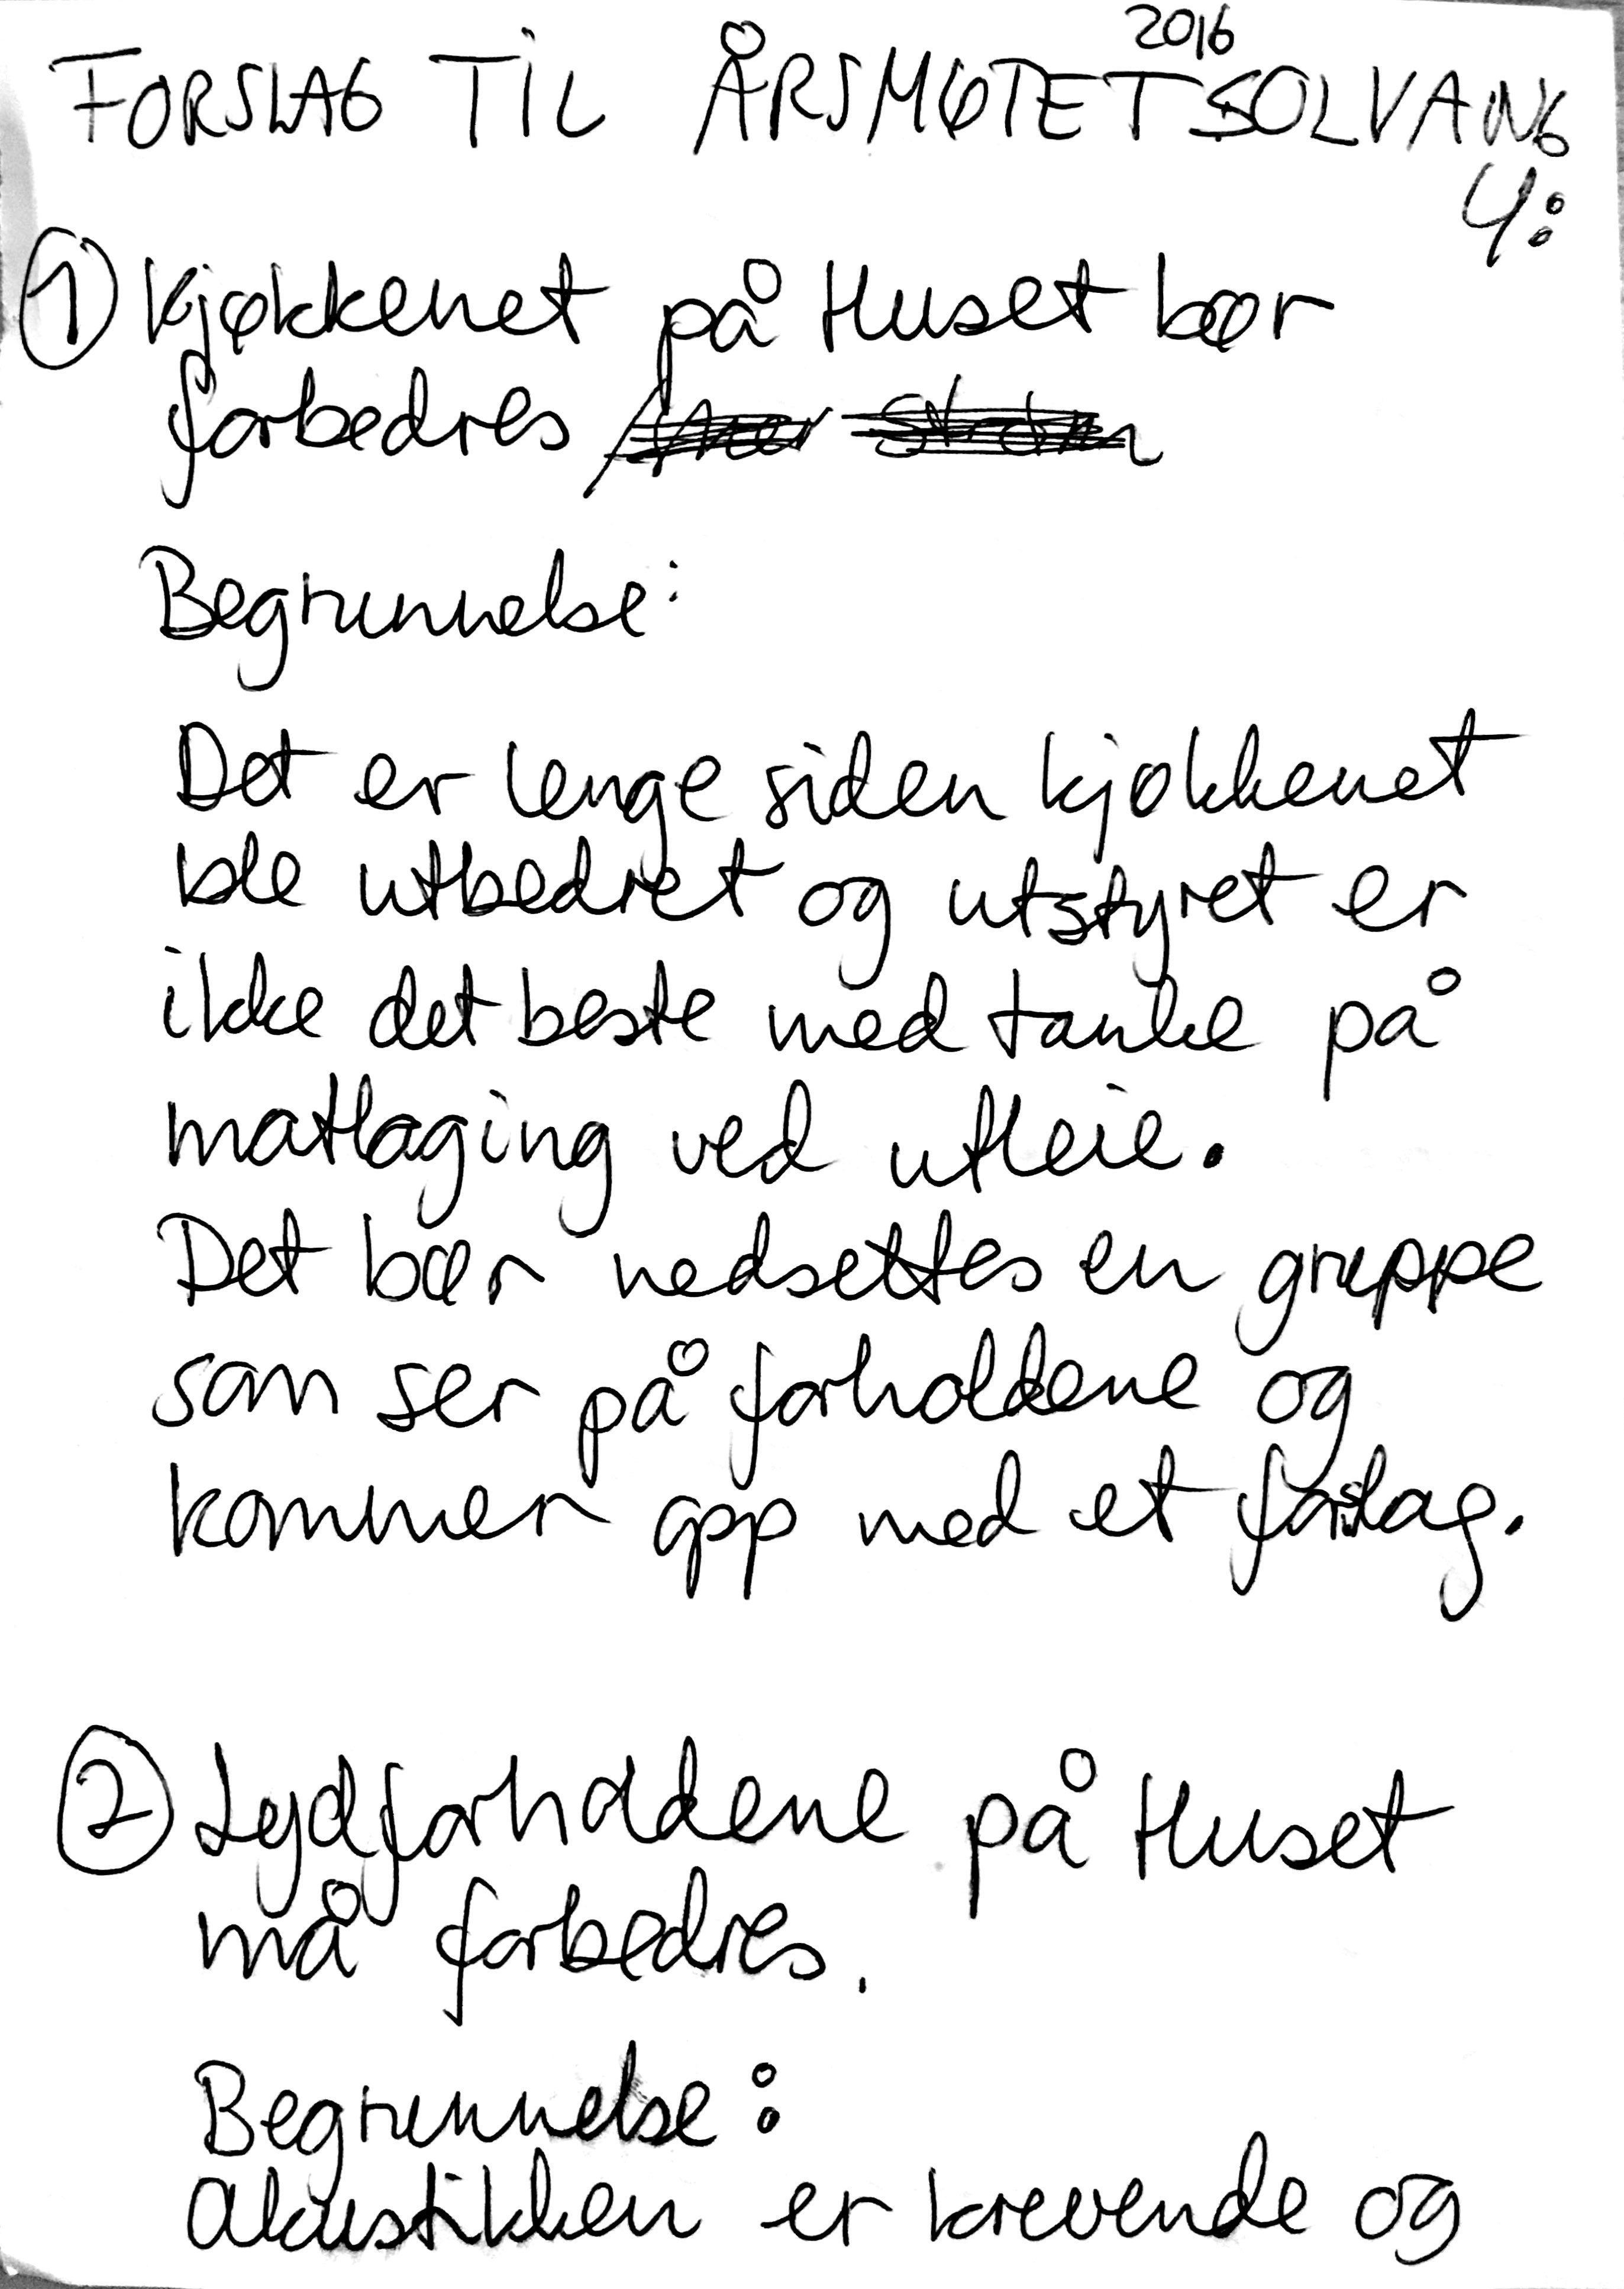 2016
FORSLAG TIL ÅRSMØTET SOLVANG
4:
① Kjøkkenet på Huset bør
forbedres
Begrunnelse:
Det er lenge siden kjøkkenet
ble utbedret og utstyret er
ikke det beste med tanke på
matlaging ved utleie.
Det bør nedsettes en gruppe
som ser på forholdene og
kommer opp med et forslag.
② Lydforholdene på Huset
må forbedres.
Begrunnelse:
Akustikken er krevende og